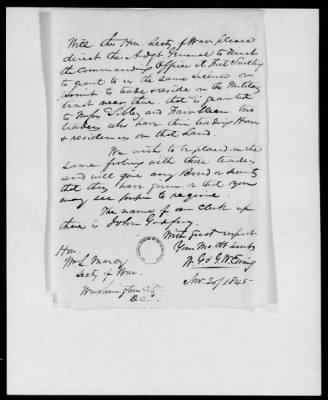 Will the Hon. Secty of War please
direct the Adgt General to direct
the Commanding Officer at Fort Snelling
to grant to us the same license or
permit to trade & reside on the Military
tract near there that is granted
to Messrs Sibley and Faribault two
traders who have their trading Houses
& residences on that Land.
We wish to be placed on the
same footing with those traders
and will give any Bond or security
that they have given or that you
may see proper to require.
The name of our Clerk up
there is John Godfrey.
With great respect
Your Mo. Obt Servts
W. G. & G. W. Ewing
Hon.
Wm L Marcy
Secty of War.
Washington City
D.C.
Nov. 20/1845-